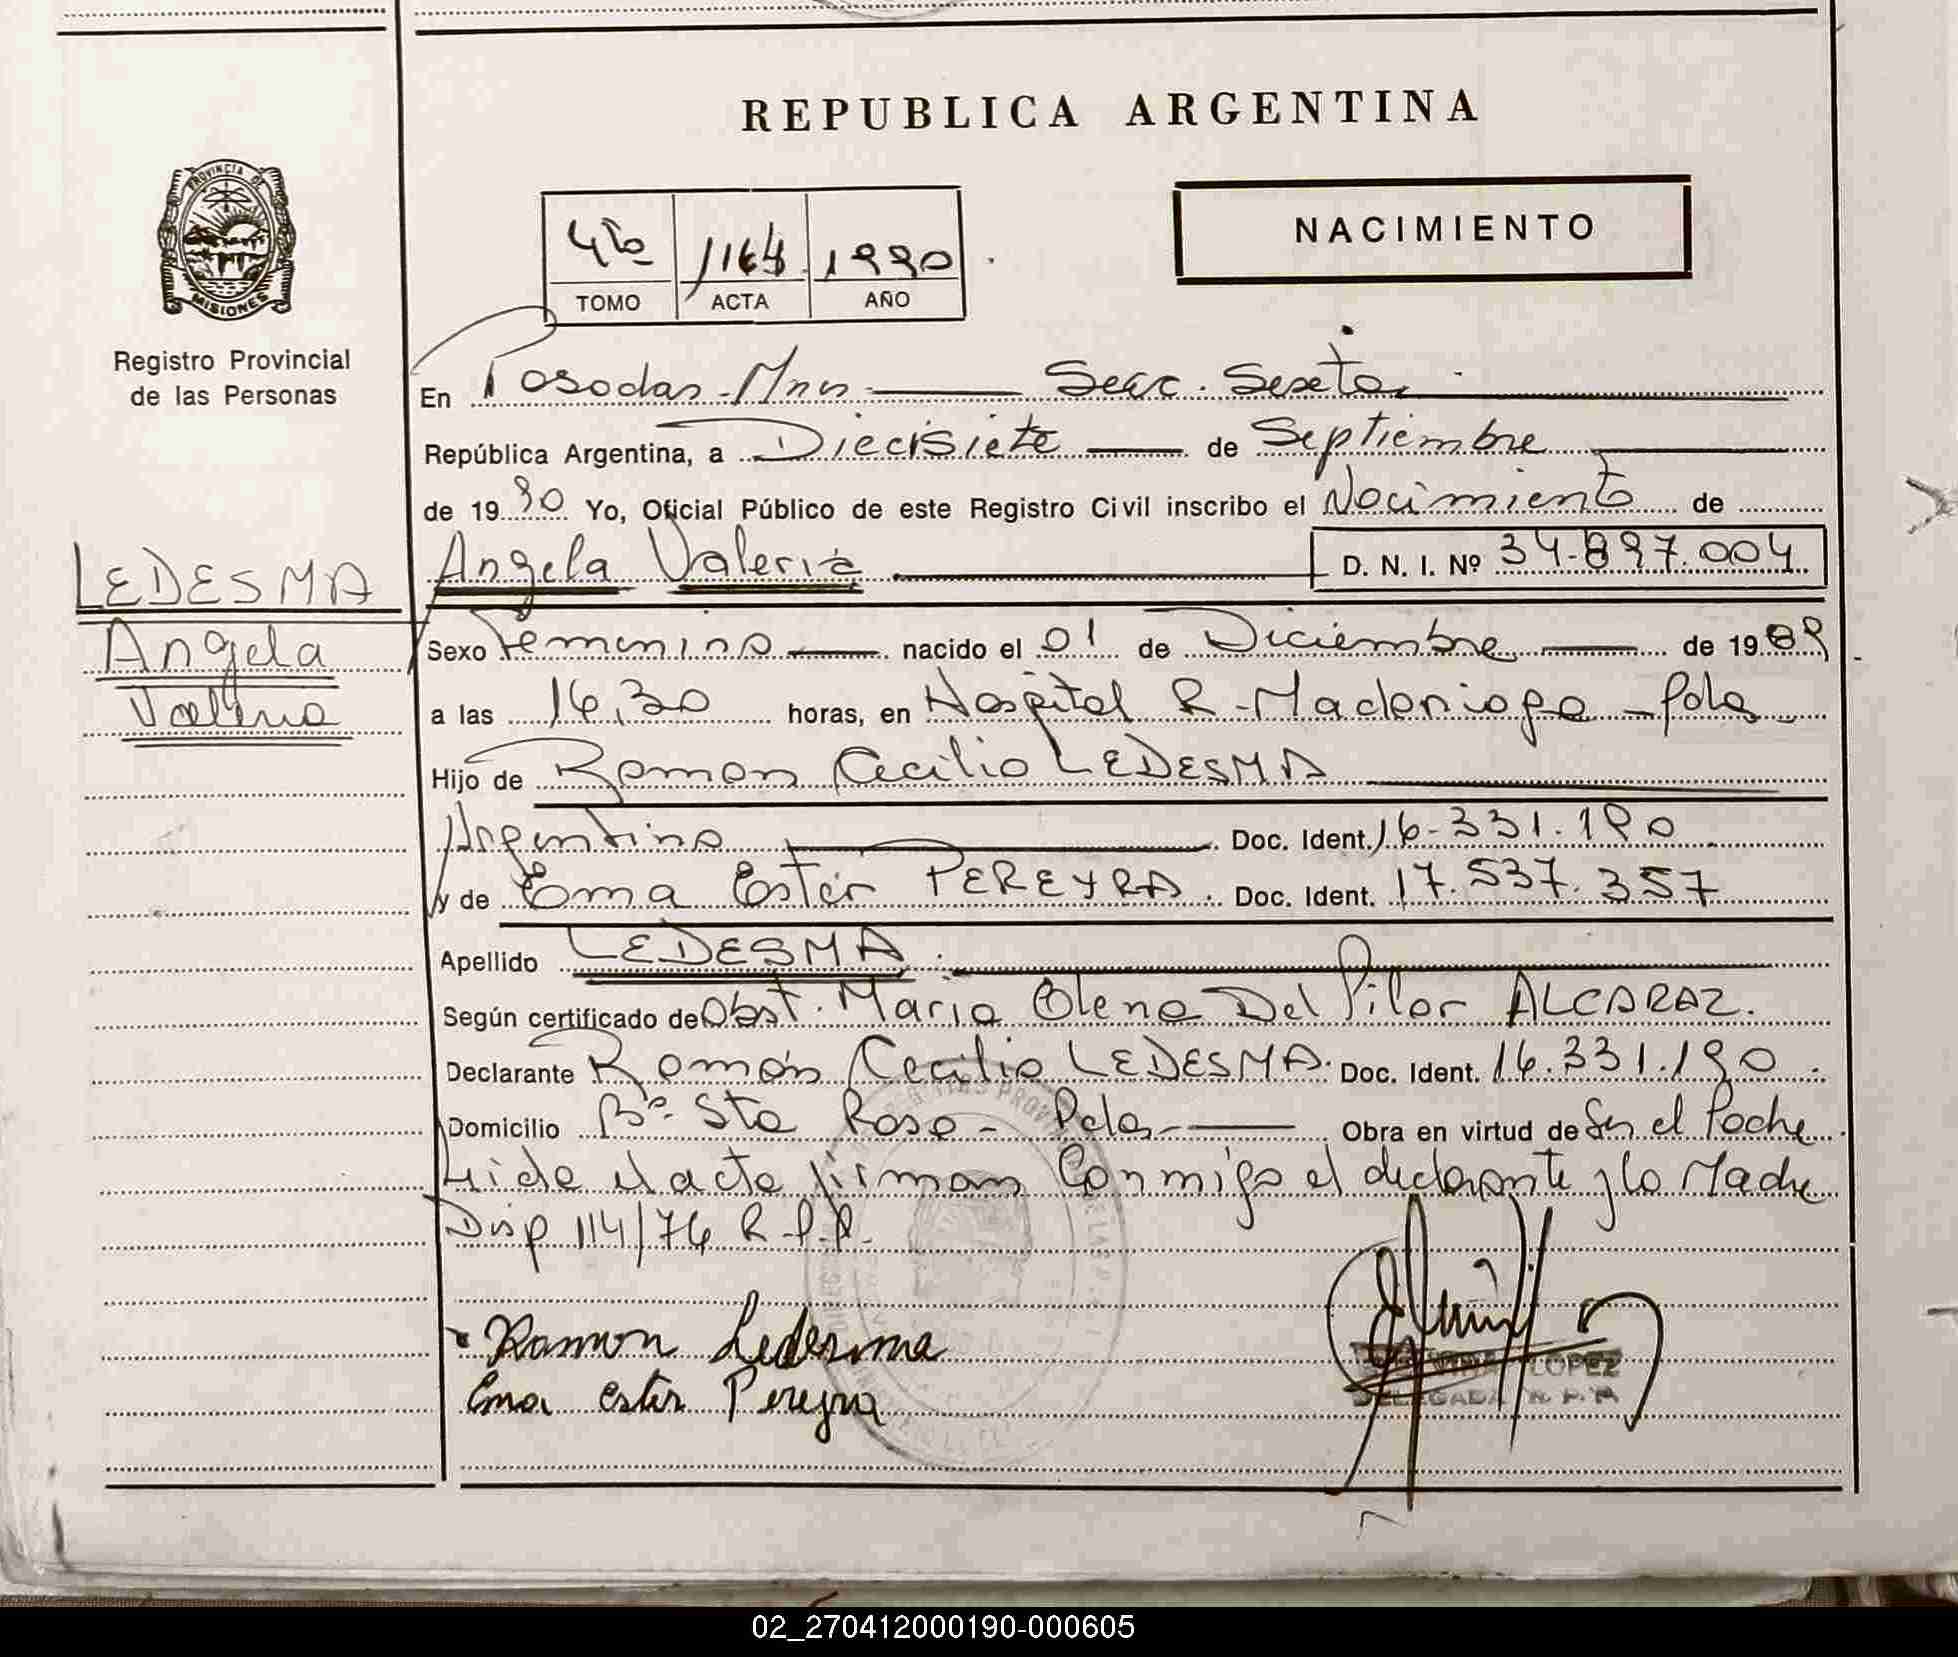 REPUBLICA ARGENTINA
PROVINCIA DE
MISIONES
Registro Provincial
de las Personas
4to 1164 1990
TOMO ACTA AÑO
NACIMIENTO
En Posadas - Mnes Secc. Sexta
República Argentina, a Diecisiete de Septiembre
de 1990 Yo, Oficial Público de este Registro Civil inscribo el Nacimiento de
Angela Valeria D. N. I. Nº 34.897.004
LEDESMA
Angela
Valeria
Sexo Femenino nacido el 01 de Diciembre de 1989
a las 16,30 horas, en Hospital R. Madariaga - Pdas
Hijo de Ramon Cecilio LEDESMA
Argentino Doc. Ident. 16.331.190
y de Ema Ester PEREYRA. Doc. Ident. 17.537.357
Apellido LEDESMA
Según certificado de Obst. Maria Elena Del Pilar ALCARAZ.
Declarante Ramón Cecilio LEDESMA. Doc. Ident. 16.331.190
Domicilio Bº Sta Rosa - Pdas - Obra en virtud de Ser el Padre
Leida el acta firman Conmigo el declarante y la Madre
Disp 114/76 R.P.P.
Ramon Ledesma
Ema ester Pereyra
LOPEZ
DELEGADA R. P. P.
02_270412000190-000605